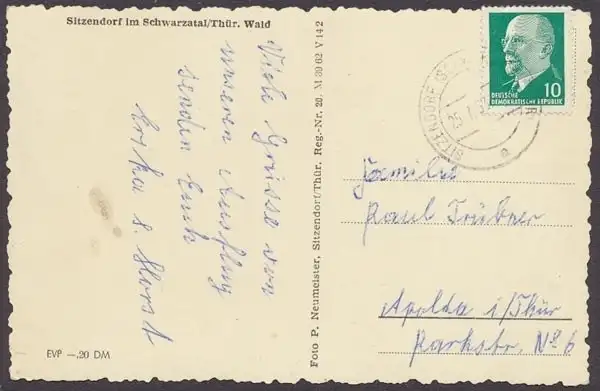 Sitzendorf im Schwarzatal/Thür. Wald
Viele Grüsse von
unseren Ausflug
senden Euch
Erika u. Horst
EVP —,20 DM
Foto P. Neumeister, Sitzendorf/Thür. Reg.-Nr. 20. M 30 62 V 14 2
10
DEUTSCHE
DEMOKRATISCHE REPUBLIK
SITZENDORF
a
Familie
Paul Trübner
Apolda i/Thür
Parkstr. No 6